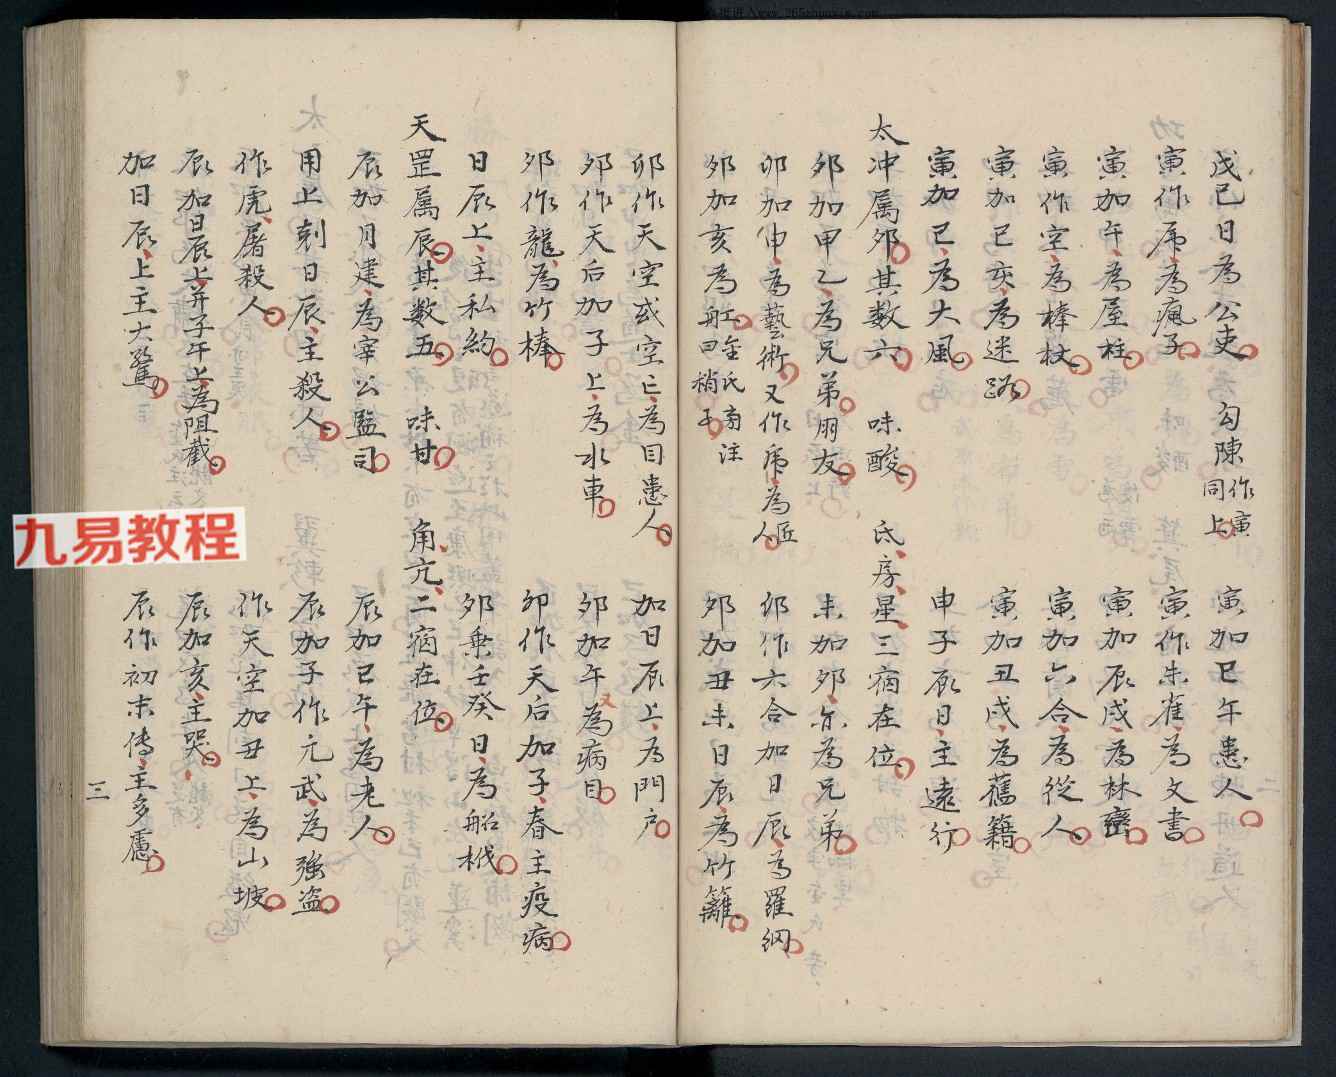 戊巳日為公吏 勾陳作寅同上 寅加巳午患人
寅作虎為瘋子 寅作朱雀為文書
寅加午為屋柱 寅加辰戌為林巒
寅作空為棒杖 寅加六合為從人
寅加巳亥為迷路 寅加丑戌為舊籍
寅加巳為大風 申子辰日主遠行
太冲属卯其数六 味酸 氐房星三宿在位
卯加甲乙為兄弟朋友 未加卯亦為兄弟
卯加申為藝術又作虎為匠人 卯作六合加日辰為羅網
卯加亥為舡 卯加丑未日辰為竹籬
卯作天空或空亡為目患人 加日辰上為門戶
卯作天后加子上為水車 卯加午為病目
卯作龍為竹棒 卯作天后加子春主疫病
日辰上主私約 卯乘壬癸日為船栰
天罡属辰其数五 味甘 角亢二宿在位
辰加月建為宰公監司 辰加巳午為老人
用上剋日辰主殺人 辰加子作元武為強盗
作虎屠殺人 作天空加丑上為山坡
辰加日辰上并子午上為阻截 辰加亥主哭
加日辰上主大驚 辰作初末傳主多慮
三
九易教程